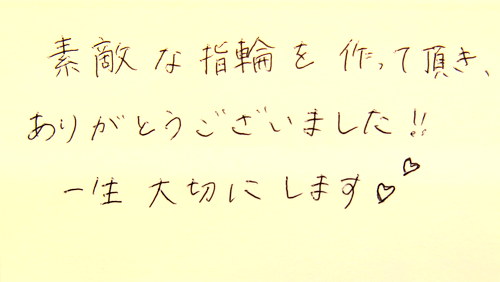 素敵な指輪を作って頂き、
ありがとうございました!!
一生大切にします♡♡